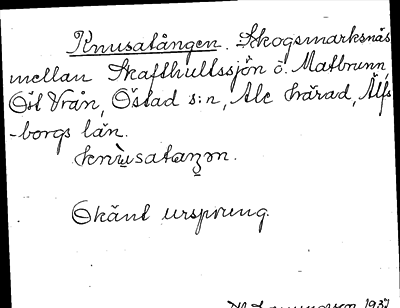 Knusatången. Skogsmarksnäs
mellan Skafthultssjön o. Matbrunn,
Öil Vrån, Östad s:n, Ale härad, Älfs
-borgs län.
Okänt ursprung.
1937